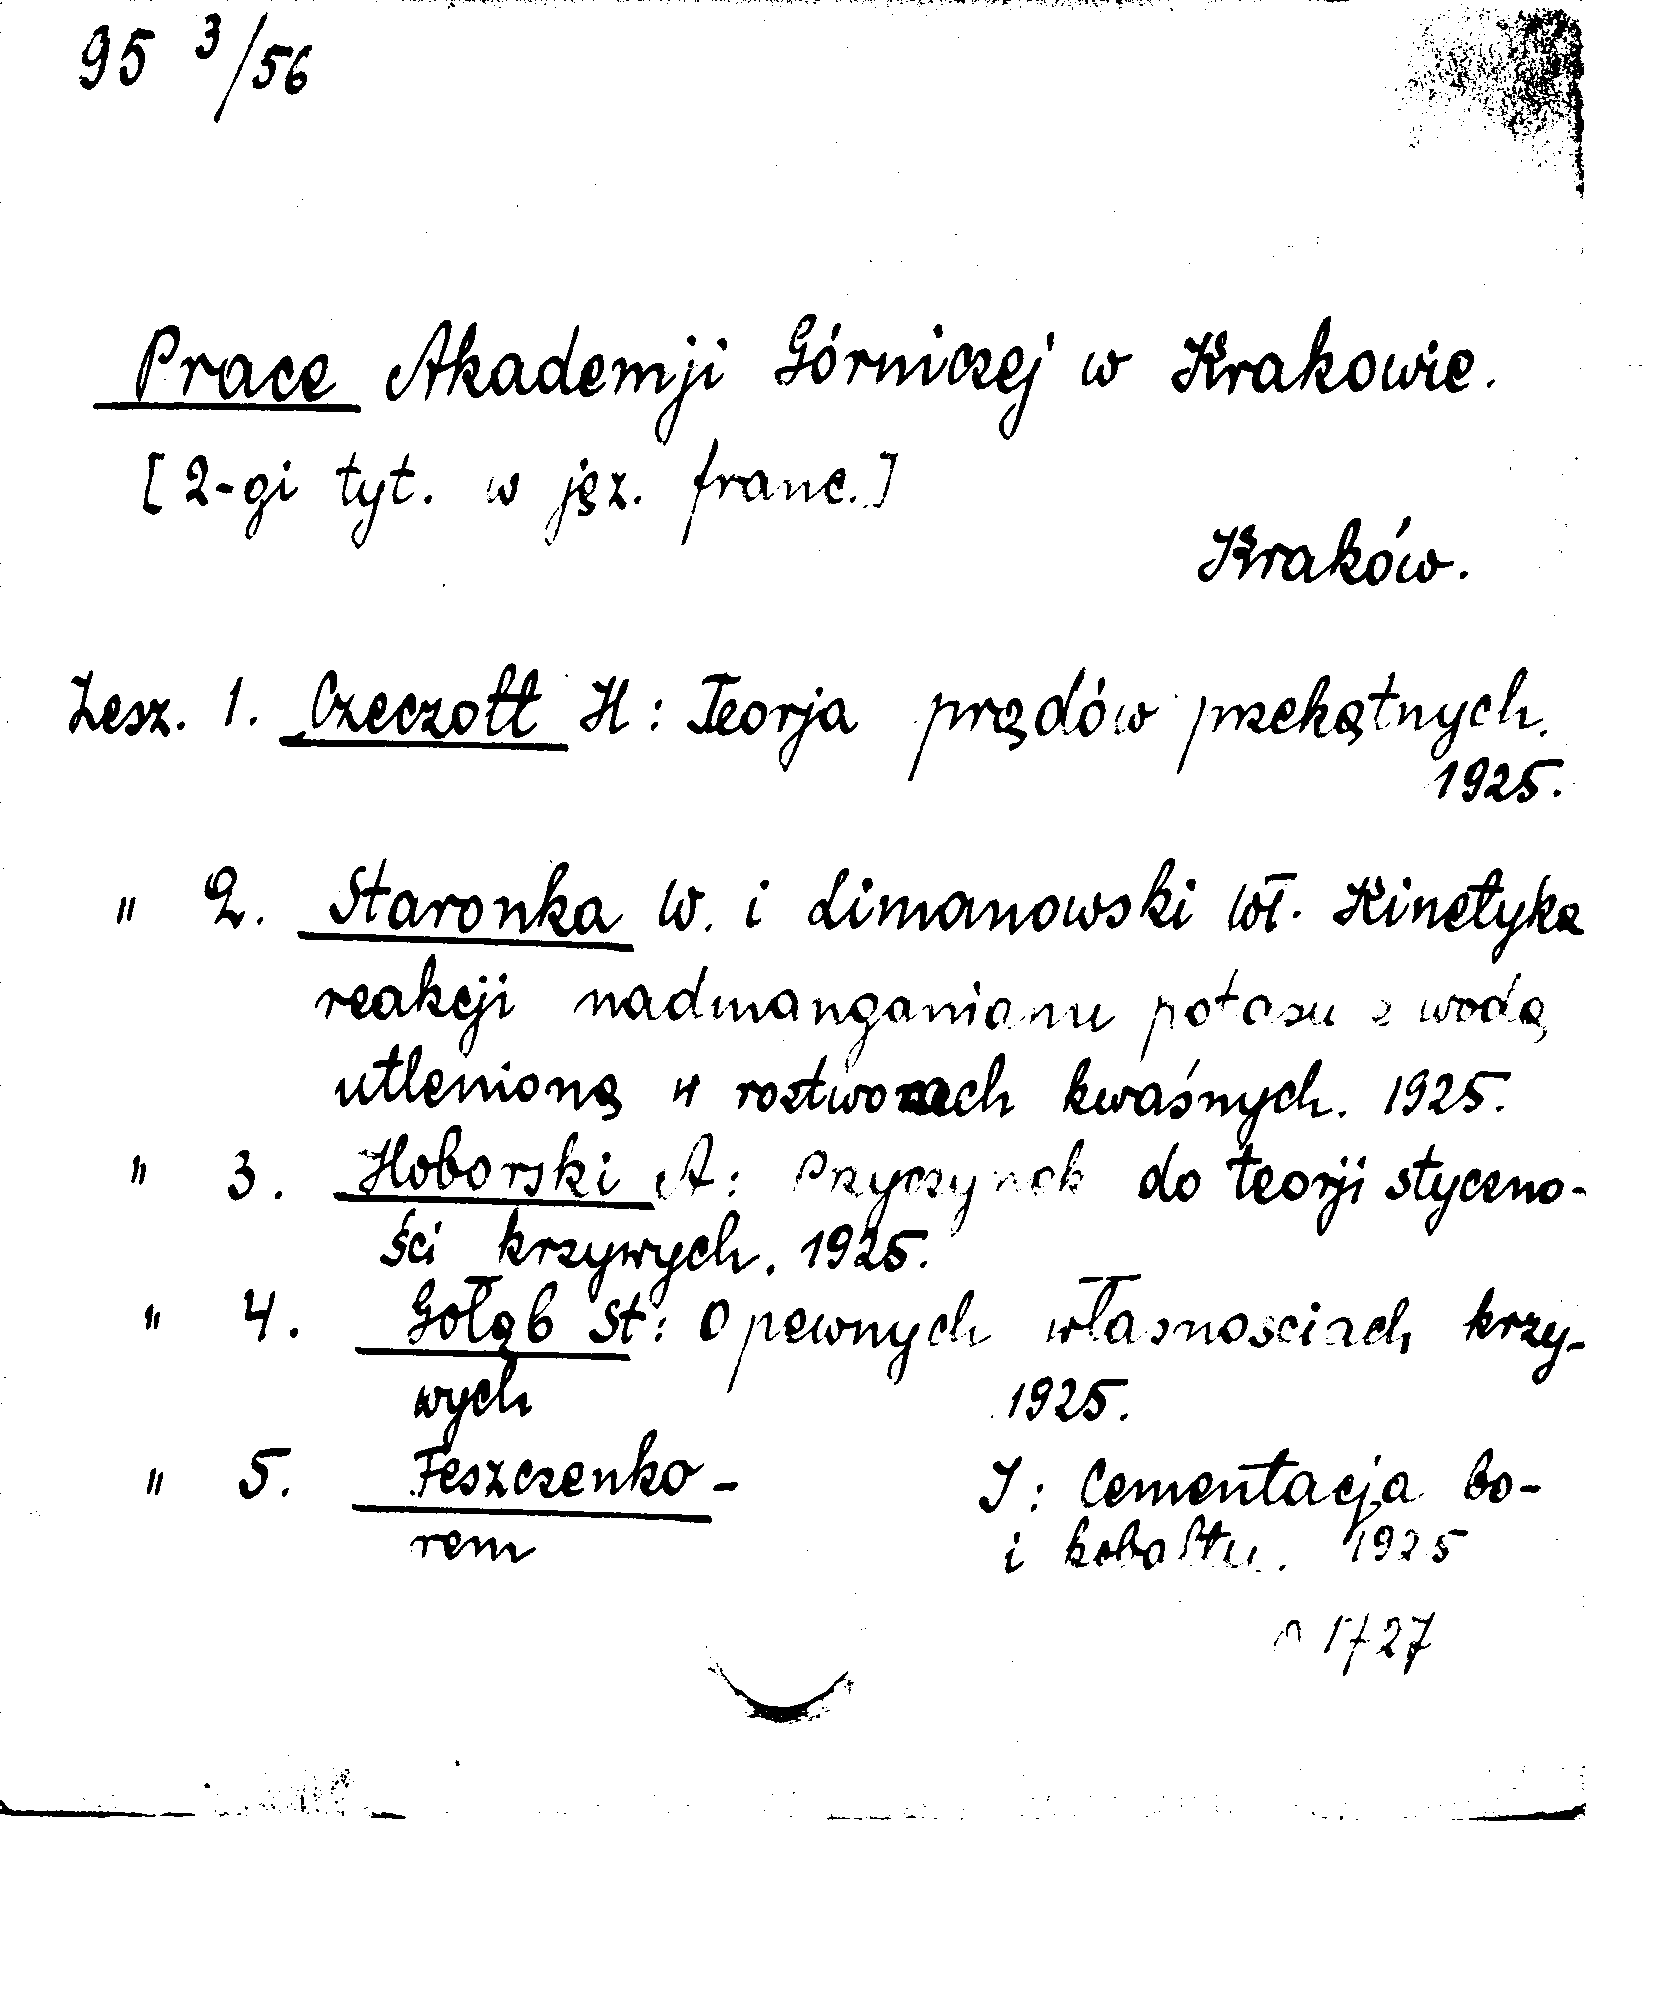 95 3/56
Prace Akademji Górniczej w Krakowie.
[2-gi tyt. w jęz. franc.]
Kraków.
Zesz. 1. Czeczott H: Teorja prądów przekątnych.
1925.
" 2. Staronka W. i Limanowski Wł. Kinetyka
reakcji nadmanganianu potasu z wodą
utlenioną w roztworach kwaśnych. 1925.
" 3. Hoborski A: Przyczynek do teorji styczno-
ści krzywych. 1925.
" 4. Gołąb St: O pewnych własnosciach krzy-
wych 1925.
" 5. Feszczenko- J: Cementacja bo-
rem i kobaltu. 1925
1727